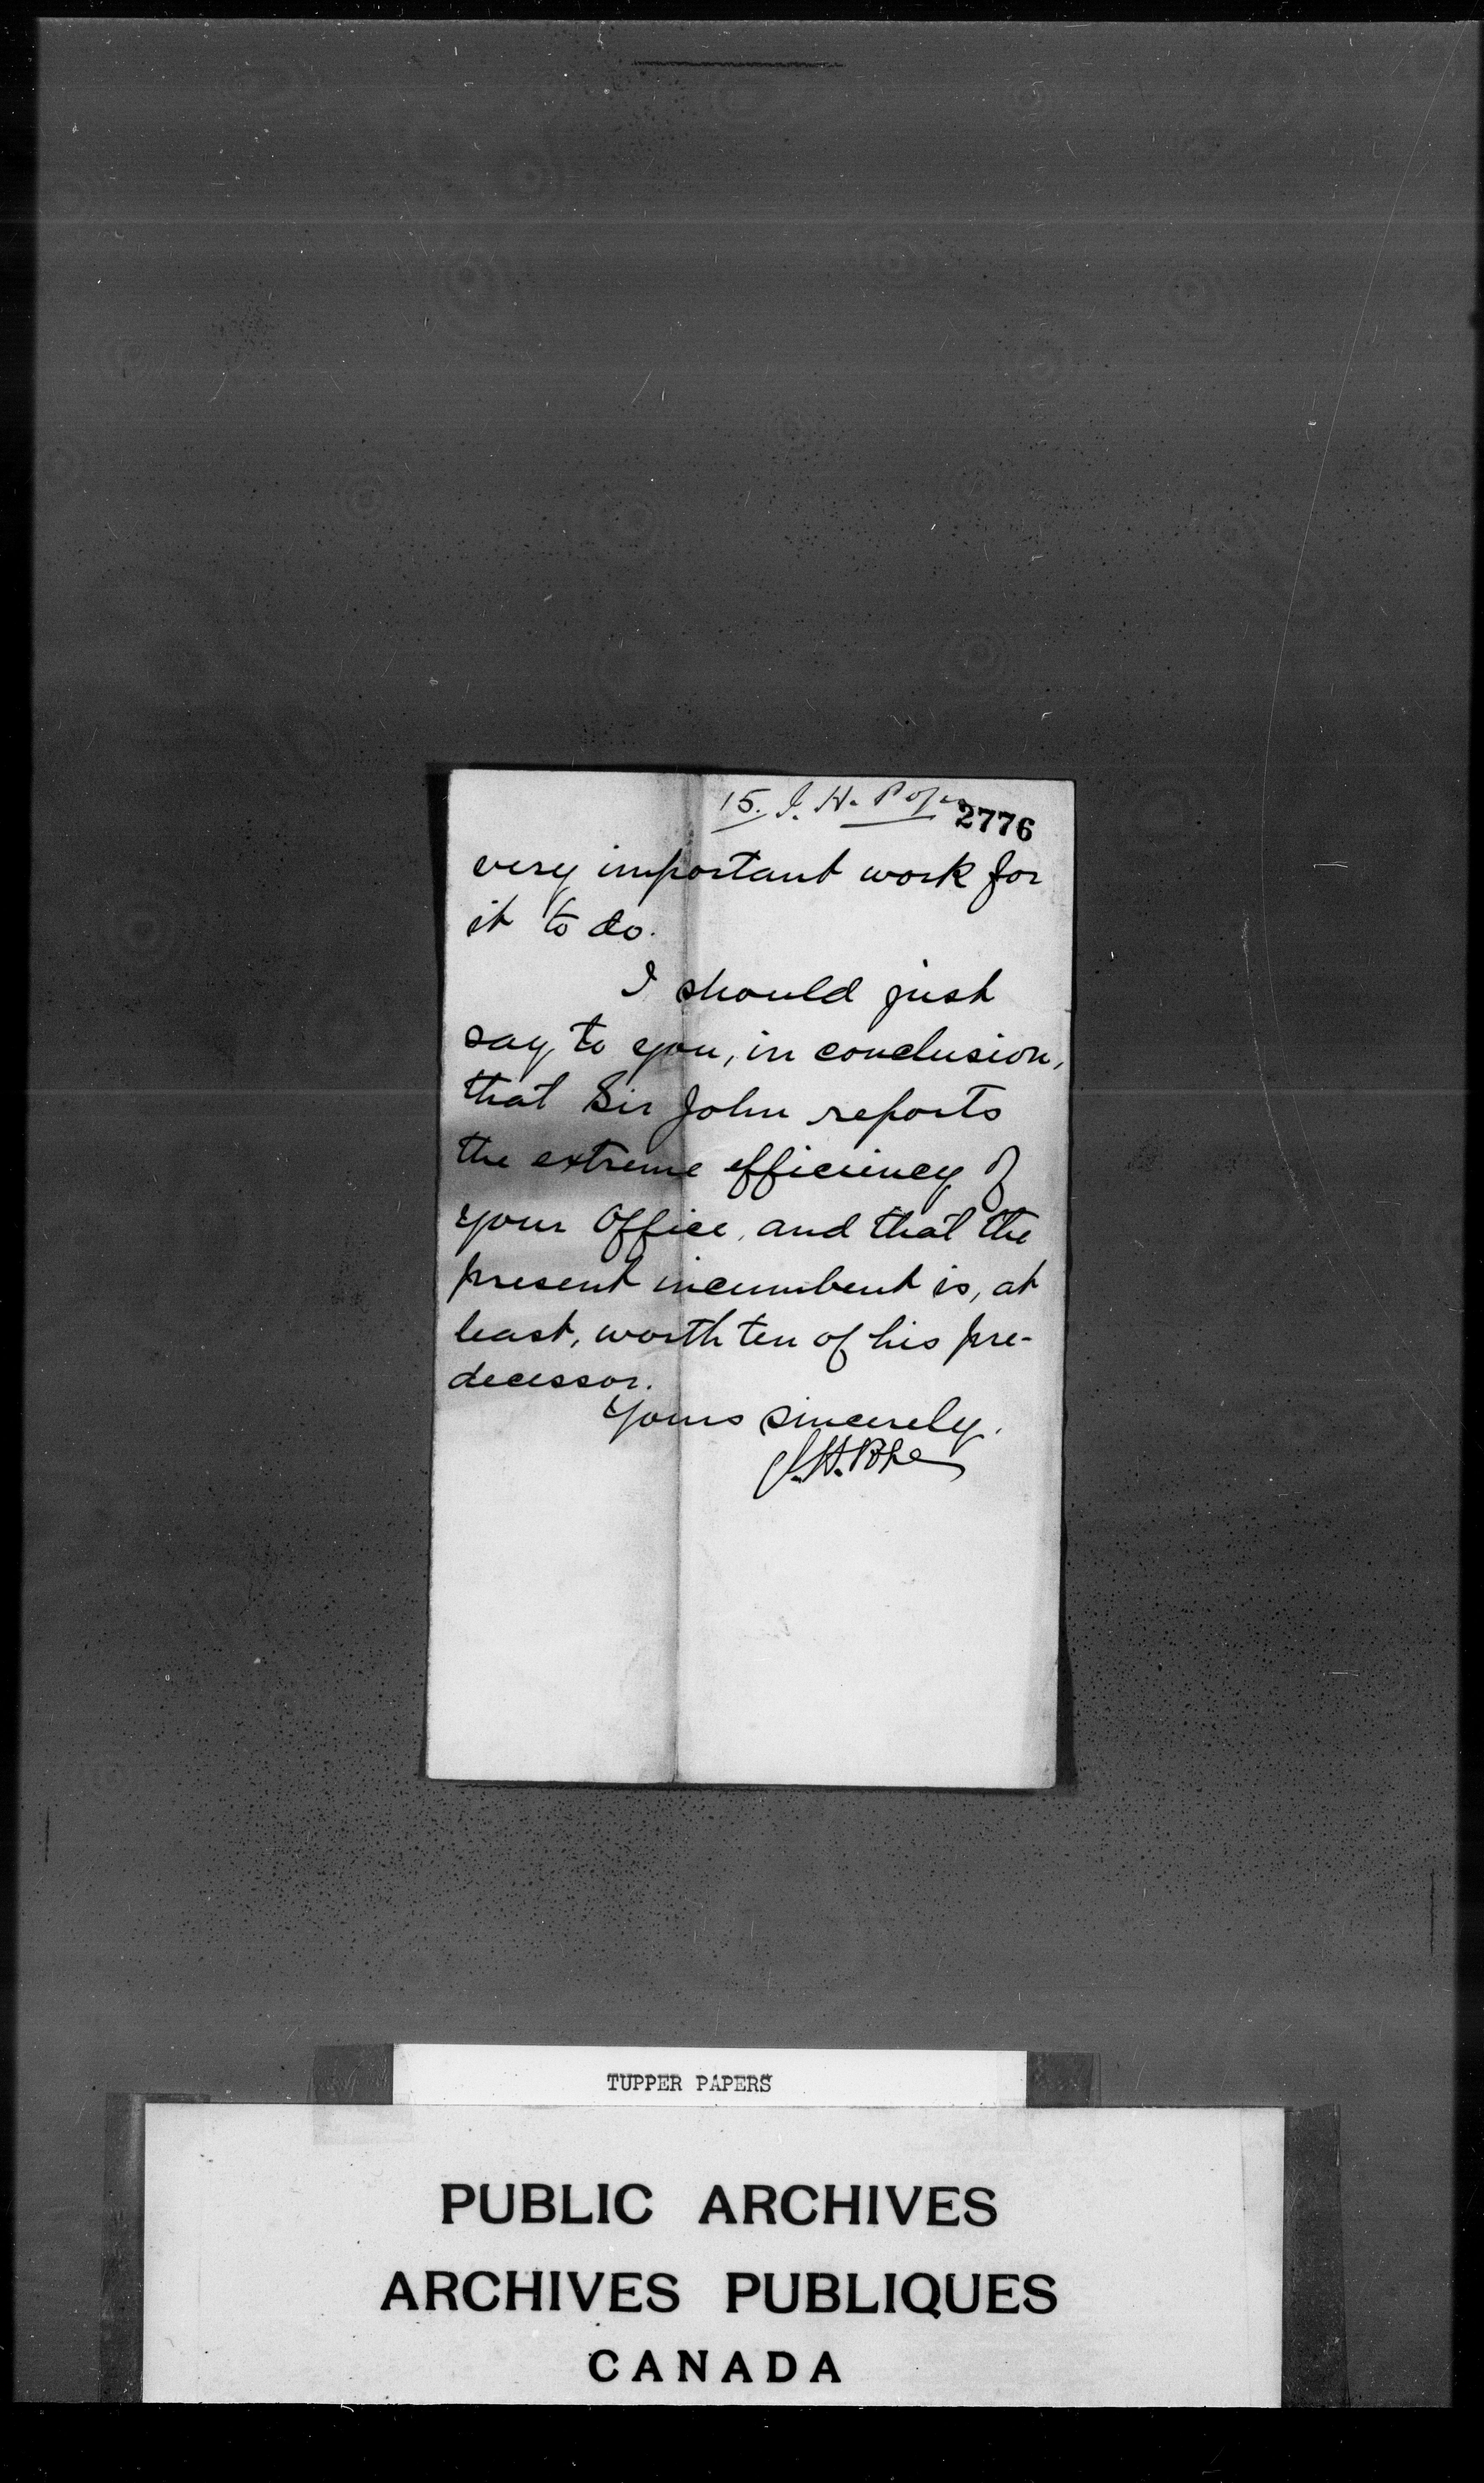 15. J. H. Pope
2776
very important work for
it to do.
I should just
say to you, in conclusion,
that Sir John reports
the extreme efficiency of
your Office, and that the
present incumbent is, at
least, worth ten of his pre-
decessor.
Yours sincerely.
J.H. Pope
TUPPER PAPERS
PUBLIC ARCHIVES
ARCHIVES PUBLIQUES
CANADA